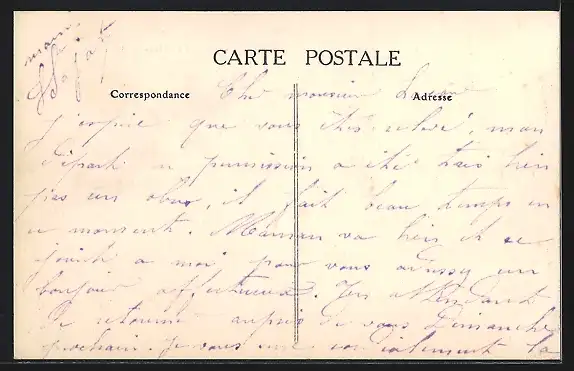 CARTE POSTALE
Correspondance
Adresse
Cher monsieur
J'espère que vous êtes
départ permission a été très bien
pas un obus, il fait beau temps en
ce moment. Maman va bien et se
joint a moi pour vous adresser un
bonjour affectueux. En attendant
de retourner auprès de vous Dimanche
prochain. Je vous cordialement la